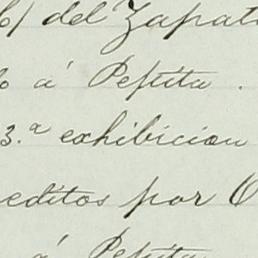 del Zapat
á Peptita.
3.ª exhibicion
editos por
á Peptita